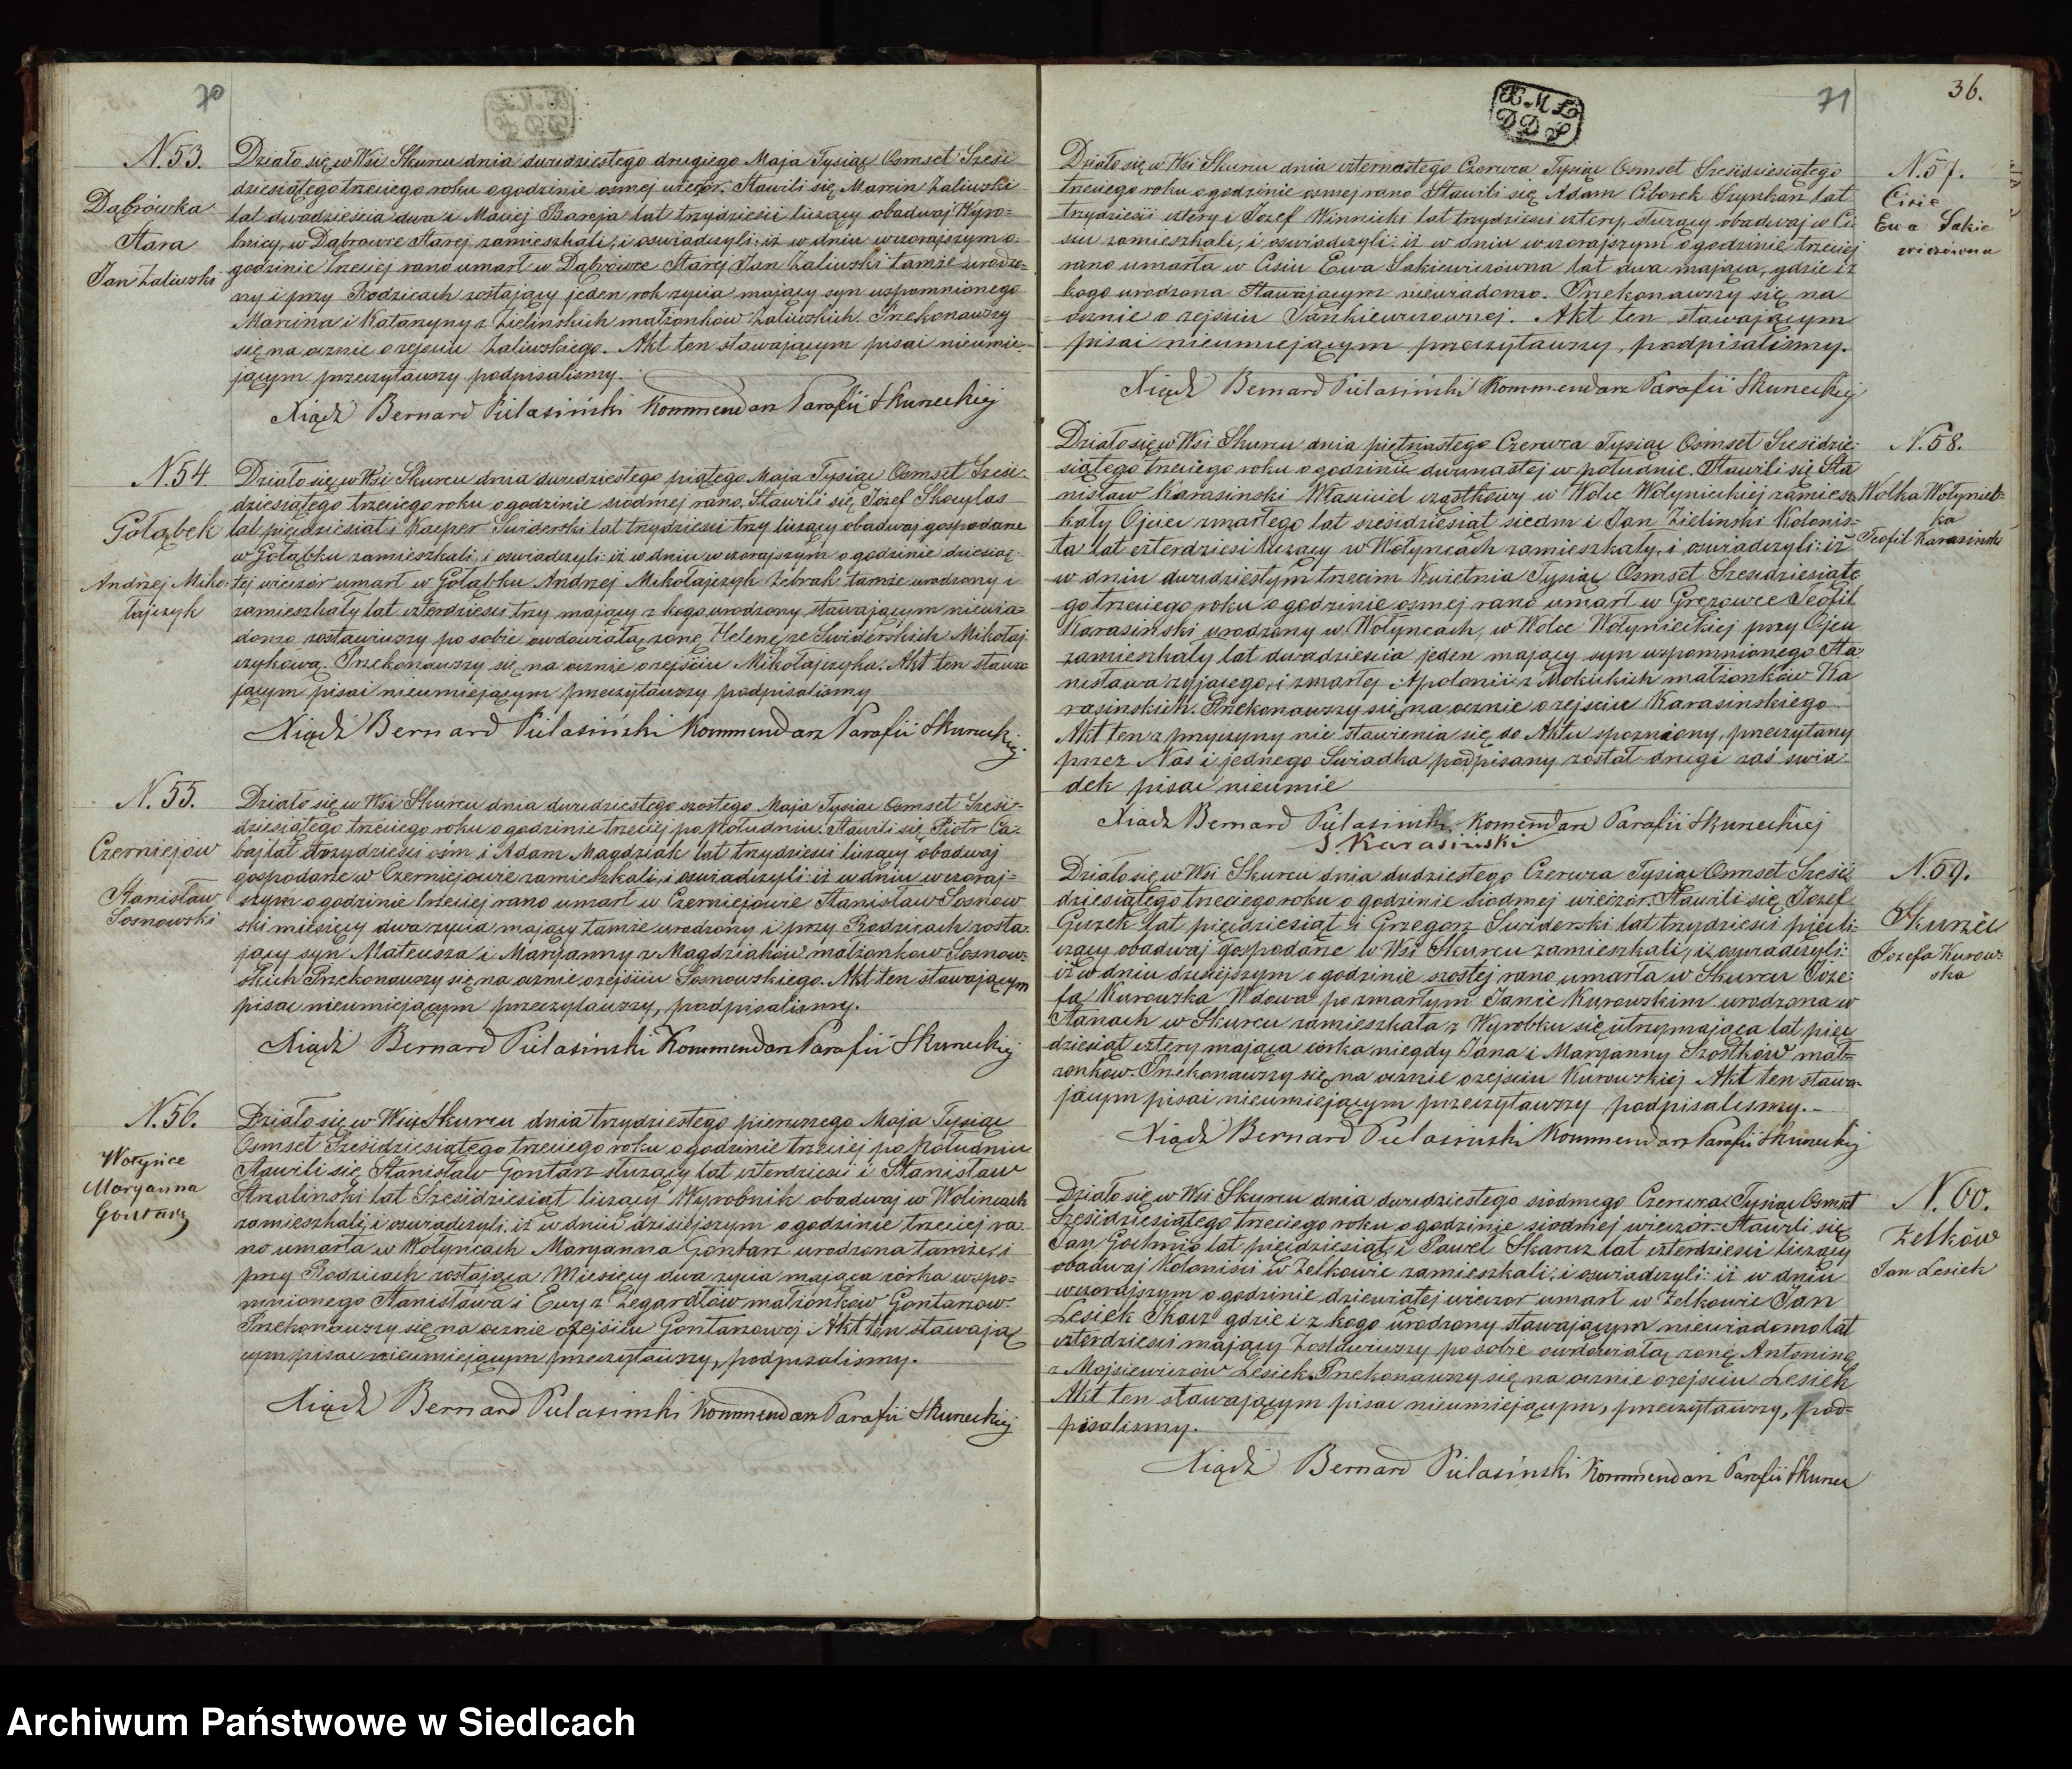 70
N. 53.
Dąbrówka
Stara
Jan Zaliwski
Działo się w Wsi Skurcu dnia dwudziestego drugiego Maja Tysiąc Osmset Sześć
dziesiątego trzeciego roku o godzinie osmej wieczór. Stawili się Marcin Zaliwski
lat dwadzieścia dwa i Maciej Bareja lat trzydzieści liczący obadwaj Wyro=
bnicy, w Dąbrowce Starej zamieszkali, i oswiadczyli: iż w dniu wczorajszym o
godzinie trzeciej rano umarł w Dąbrówce Starej Jan Zaliwski tamże urodzo=
ny i przy Rodzicach zostający jeden rok zycia mający syn wspomnionego
Marcina i Katarzyny z Zielinskich małżonków Zaliwskich. Przekonawszy
się na ocznie o zejsciu Zaliwskiego. Akt ten stawającym pisać nieumie
jącym przeczytawszy podpisalismy.
Xiądz Bernard Pulasiński Kommendarz Parafii Skurzeckiej
N. 54
Gołąbek
Andrzej Miko:
łajczyk
Działo się w Wsi Skurcu dnia dwudziestego piątego Maja Tysiąc Osmset Sześć
dziesiątego trzeciego roku o godzinie siodmej rano, Stawili się Józef Skoczylas
lat pięćdziesiat i Kacper Swiderski lat trzydzieści trzy liczący obadwaj gospodarze
w Gołąbku zamieszkali, i oswiadczyli: iż w dniu wczorajszym o godzinie dziesiąt
tej wieczór umarł w Gołąbku Andrzej Mikołajczyk Żebrak tamże urodzony i
zamieszkały lat czterdzieści trzy mający z kogo urodzony stawającym niewia=
domo zostawiwszy po sobie owdowiałą zonę Helenę ze Swiderskich Mikołaj
czykową. Przekonawszy się na ocznie o zejściu Mikołajczyka. Akt ten stawa
jącym pisać nieumiejącym przeczytawszy podpisalismy
Xiądz Bernard Pulasiński Kommendarz Parafii Skurzeckiej
N. 55.
Czerniejow
Stanisław
Sosnowski
Działo się w Wsi Skurcu dnia dwudziestego szostego Maja Tysiąc Osmset Sześć=
dziesiątego trzeciego roku o godzinie trzeciej po południu. Stawili się Piotr Ca
baj lat trzydzieści osm i Adam Magdziak lat trzydzieści liczący obadwaj
gospodarze w Czerniejowie zamieszkali, i oswiadczyli: iż w dniu wczoraj=
szym o godzinie trzeciej rano umarł w Czerniejowie Stanisław Sosnow
ski miesięcy dwa zycia mający tamże urodzony i przy Rodzicach zosta
jący syn Mateusza i Maryanny z Magdziaków małżonkow Sosnow=
skich Przekonawszy się na ocznie o zejściu Sosnowskiego. Akt ten stawającym
pisac nieumiejącym przeczytawszy, podpisalismy.
Xiądz Bernard Pulasinski Kommendarz Parafii Skurzeckiej
N. 56.
Wołynce
Maryanna
Gontarz
Działo się w Wsi Skurcu dnia trzydziestego pierwszego Maja Tysiąc
Osmset Sześćdziesiątego trzeciego roku o godzinie trzeciej po południu
Stawili się Stanisław Gontarz służący lat czterdzieści i Stanisław
Strzalinski lat Sześćdziesiąt liczący Wyrobnik obadwaj w Wolincach
zamieszkali, i oswiadczyli: iż w dniu dzisiejszym o godzinie trzeciej ra
no umarła w Wołyncach Maryanna Gontarz urodzona tamże, i
przy Rodzicach zostająca Miesięcy dwa zycia mająca córka wspo=
mnionego Stanisława i Ewy z Zegardłów małżonków Gontarzow.
Przekonawszy się na ocznie o zejściu Gontarzowej Akt ten stawają
cym pisac nieumiejącym przeczytawszy, podpisalismy.
Xiądz Bernard Pulasinski Kommendarz Parafii Skurzeckiej
X. M. L.
D D S
71
36.
Działo się w Wsi Skurcu dnia czternastego Czerwca Tysiąc Osmset Sześćdziesiątego
trzeciego roku o godzinie osmej rano Stawili się Adam Ciborek Szynkarz lat
trzydzieści cztery i Józef Winnicki lat trzydzieści cztery służący obadwaj w Ci
siu zamieszkali, i oswiadczyli: iż w dniu wczorajszym o godzinie trzeciej
rano umarła w Cisiu Ewa Sakiewiczówna lat dwa mająca, gdzie i z
kogo urodzona Stawającym niewiadomo. Przekonawszy się na
ocznie o zejściu Sankiewiczownej. Akt ten stawającym
pisac nieumiejącym przeczytawszy, podpisalismy.
Xiądz Bernard Pulasiński Kommendarz Parafii Skurzeckiej
N. 57.
Cisie
Ewa Sakie
wiczówna
Działo się w Wsi Skurcu dnia piętnastego Czerwca Tysiąc Osmset Sześćdzie
siątego trzeciego roku o godzinie dwunastej w południe. Stawili się Sta
nisław Karasinski Własciciel cząstkowy w Wolce Wołynieckiej zamiesz
kały Ojciec zmarłego lat sześćdziesiąt siedm i Jan Zielinski Kolonis=
ta lat czterdzieści liczący w Wołyncach zamieszkały, i oswiadczyli: iż
w dniu dwudziestym trzecim Kwietnia Tysiąc Osmset Sześćdziesiąte
go trzeciego roku o godzinie osmej rano umarł w Grezowce Teofil
Karasinski urodzony w Wołyncach, w Wolce Wołynieckiej przy Ojcu
zamieszkały lat dwadzieścia jeden mający syn wspomnionego Sta
nisława zyjącego, i zmarłej Apolonii z Mokickich małżonków Ka
rasinskich. Przekonawszy się na ocznie o zejściu Karasinskiego
Akt ten z przyczyny nie stawienia się do Aktu spozniony, przeczytany
przez Nas i jednego Swiadka podpisany został drugi zaś swia
dek pisac nieumie
Xiądz Bernard Pulasinski Komendarz Parafii Skurzeckiej
S. Karasiński
N. 58.
Wolka Wołyniec=
ka
Teofil Karasinski
Działo się w Wsi Skurcu dnia dudziestego Czerwca Tysiąc Osmset Sześć
dziesiątego trzeciego roku o godzinie siodmej wieczór. Stawili się Józef
Guzek lat pięćdziesiąt i Grzegorz Swiderski lat trzydzieści pięć li
czący obadwaj gospodarze w Wsi Skurcu zamieszkali, i oswiadczyli:
iż w dniu dzisiejszym o godzinie szostej rano umarła w Skurcu Joze=
fa Kurowska Wdowa po zmarłym Janie Kurowskim urodzona w
Stanach w Skurcu zamieszkała z Wyrobku się utrzymająca lat pięć
dziesiąt cztery mająca córka niegdy Jana i Maryanny Szostków mał=
zonkow. Przekonawszy się na ocznie o zejsciu Kurowskiej Akt ten stawa
jącym pisac nieumiejącym przeczytawszy podpisalismy.
Xiądz Bernard Pulasinski Kommendarz Parafii Skurzeckiej
N. 59.
Skurzec
Jozefa Kurow=
ska
Działo się w Wsi Skurcu dnia dwudziestego siodmego Czerwca Tysiąc Osmset
Sześćdziesiątego trzeciego roku o godzinie siodmej wieczór. Stawili się
Jan Gochnio lat pięćdziesiąt i Paweł Skaruz lat czterdzieści liczący
obadwaj Koloniści w Żelkowie zamieszkali, i oswiadczyli: iż w dniu
wczorajszym o godzinie dziewiątej wieczor umarł w Żelkowie Jan
Lesiek Tkacz gdzie i z kogo urodzony stawającym niewiadomo lat
czterdzieści mający Zostawiwszy po sobie owdowiałą zonę Antoninę
z Mojsiewiczów Lesiek. Przekonawszy się na ocznie o zejściu Lesiek
Akt ten stawającym pisac nieumiejącym, przeczytawszy, pod=
pisalismy.
Xiądz Bernard Pulasiński Kommendarz Parafii Skurzec
N. 60.
Żelków
Jan Lesiek
Archiwum Państwowe w Siedlcach